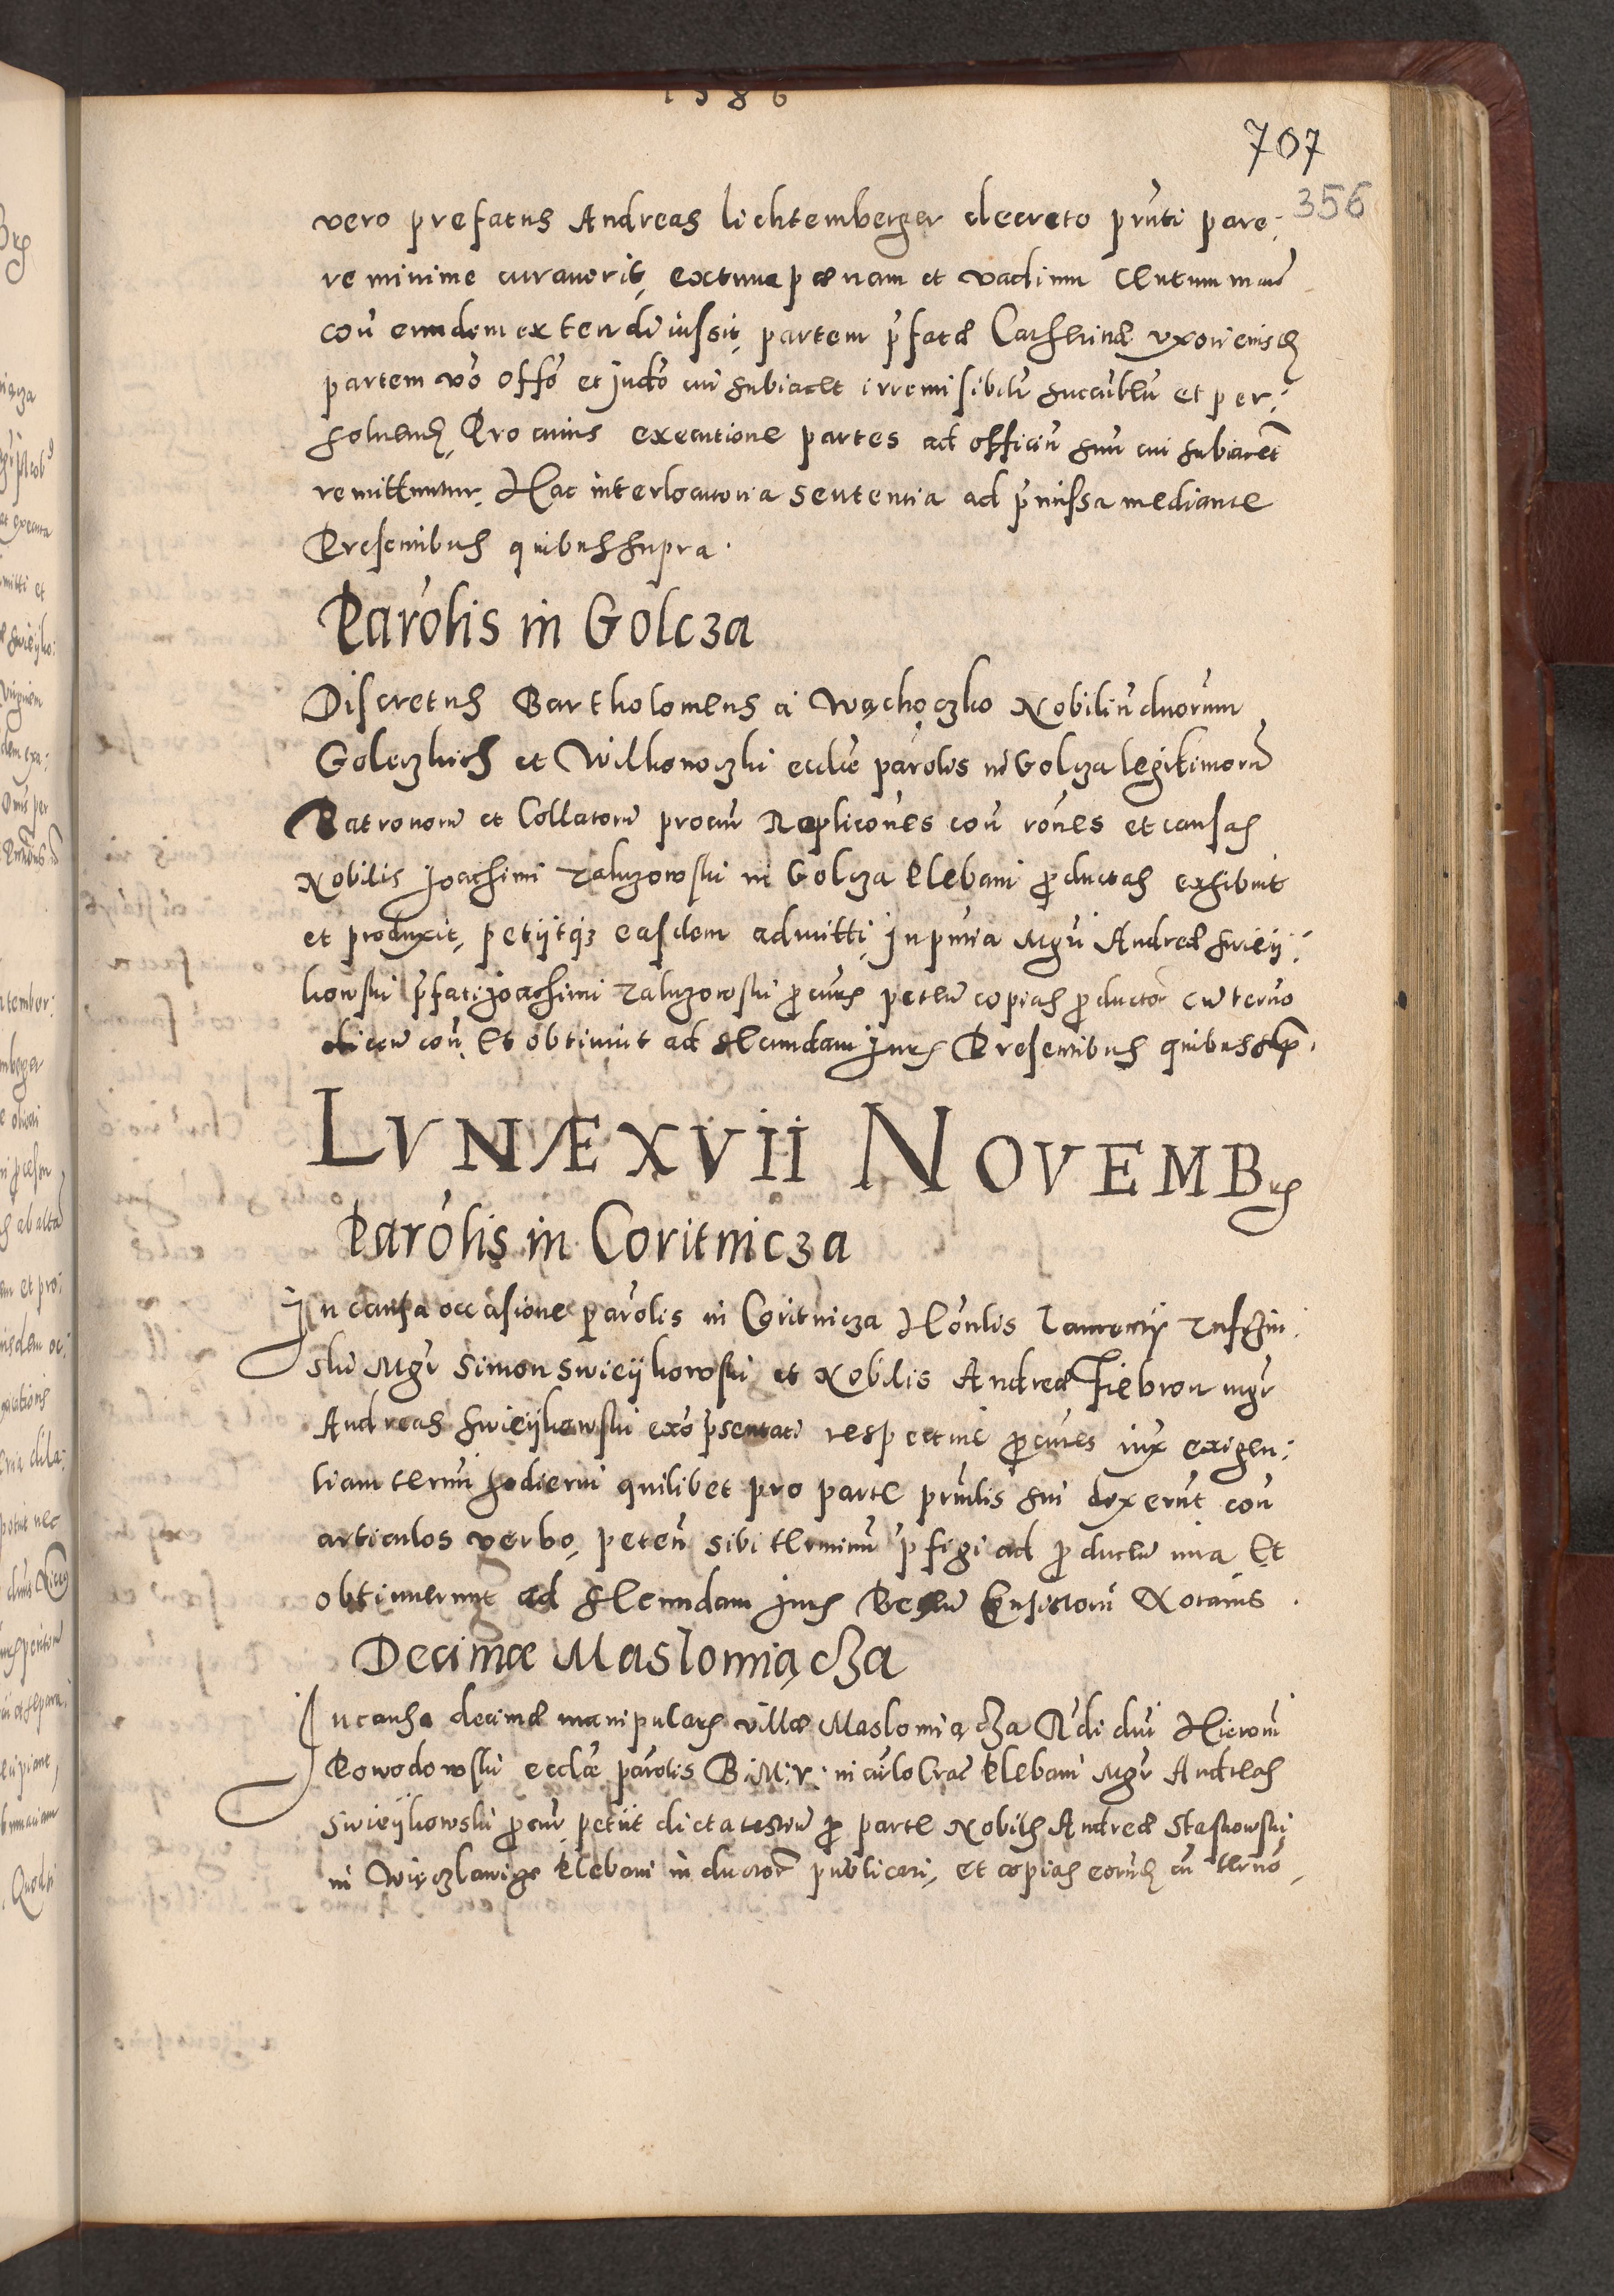 1586
707
356
vero prefatus Andreas Lichtemberger decreto pr̃nti pare:
re minime curaverit, extunc pœnam et vadium Centum marc̃
coñ eundem extendi iussit, partem p̃fatæ Catherinæ uxori eiusd
partem vo͂ offo͂ et Judo͂ cui subiacet irremisibilr̃ succub̃len̄ et per:
solvend̃, Pro cuius executione partes ad officiũ suũ cui subiacet
remittuntur, Hac interlocutoria sententia ad p̃missa mediante
Presentibus quibus supra.
Parõlis in Golcza
Discretus Bartholomeus a Wąchoczko Nobiliũ duorum
Golczkich et Wilkonoczki eccliæ parõlis in Golcza legitimorũ
Patronorũ et Collatorũ procur̃ Replicões coñ rões et causas
Nobilis Joachimi Zaluzowski in Golcza Plebani productas exhibuit
et produxit, petijtq3 easdem admitti, In pñtia Mgr̃i Andreæ Swieij:
kowski p̃fati Joachimi Zaluzowski procur̃is peten̄ copias productor̃ cũ ter̃no
dicen̄ coñ, Et obtinuit ad secundam Juris Presentibus quibus sup̃.
LVNÆ XVII NOVEMBris
Parõlis in Coritnicza
In causa occasione parõlis in Coritnicza Honlis Laurentij
ski Mgr̃ Simon Swieijkowski et Nobilis Andreæ Fiebron mgr̃
Andreas Swieijkowski exõ p̃sentati respective procur̃es iux̃ exigen:
tiam ter̃ni hodierni quilibet pro parte prin̄lis sui dixerunt coñ
articulos verbo, peten̄ sibi terminũ p̃figi ad producen̄ iura Et
obtinuerunt ad secundam Juris Consistorij Notarius.
Decimæ Maslomiącza
In causa decimæ manipularis villæ Maslomiącza R̃di dñi Hieroni̇
Powodowski eccliæ parõlis B: M: V: in cir̃lo Crac̃ Plebani Mgr̃ Andreas
Swieijkowski procur̃ petiit dicta testiũ pro parte Nobilis Andreæ Staskowski
in Plebani inductor̃ publicari, et copias eorund cũ ter̃no,